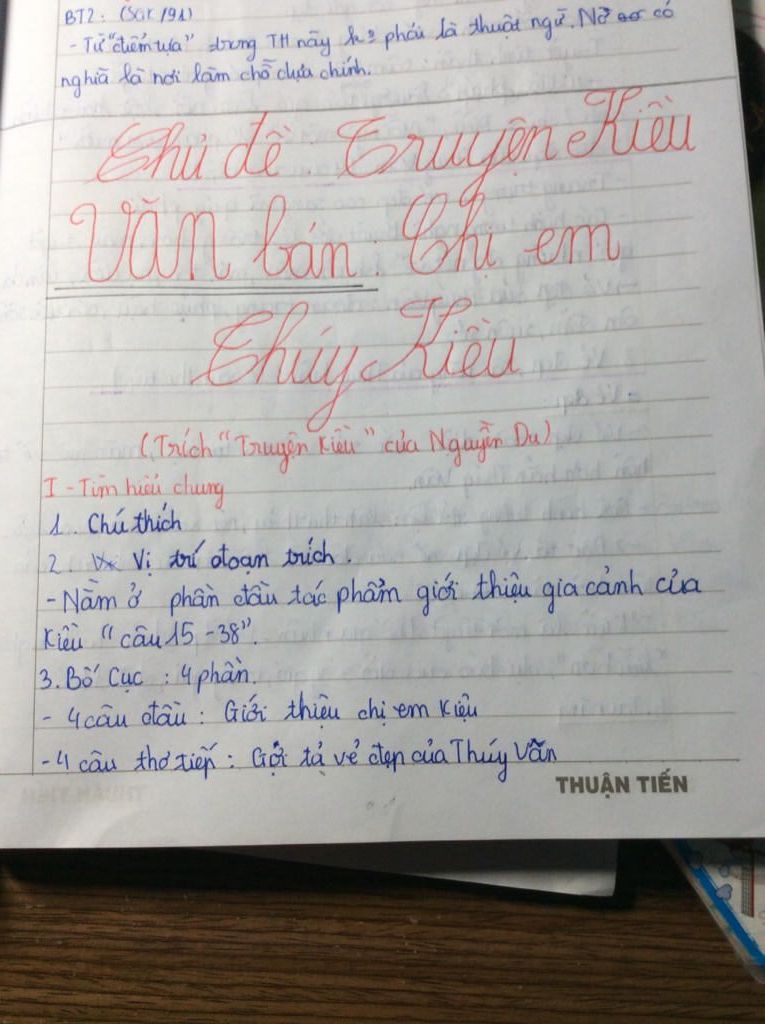 BT2: (SGK /91)
- Từ "điểm tựa" trong TH này k° phải là thuật ngữ. Nó có
nghĩa là nơi làm chỗ dựa chính.
Chủ đề: Truyện Kiều
Văn bản: Chị em
Thúy Kiều
(Trích "Truyện Kiều" của Nguyễn Du)
I - Tìm hiểu chung
1. Chú thích
2. Vị trí đoạn trích.
- Nằm ở phần đầu tác phẩm giới thiệu gia cảnh của
Kiều "câu 15 - 38".
3. Bố Cục : 4 phần.
- 4 câu đầu : Giới thiệu chị em Kiều
- 4 câu thơ tiếp : Gợi tả vẻ đẹp của Thúy Vân
THUẬN TIẾN